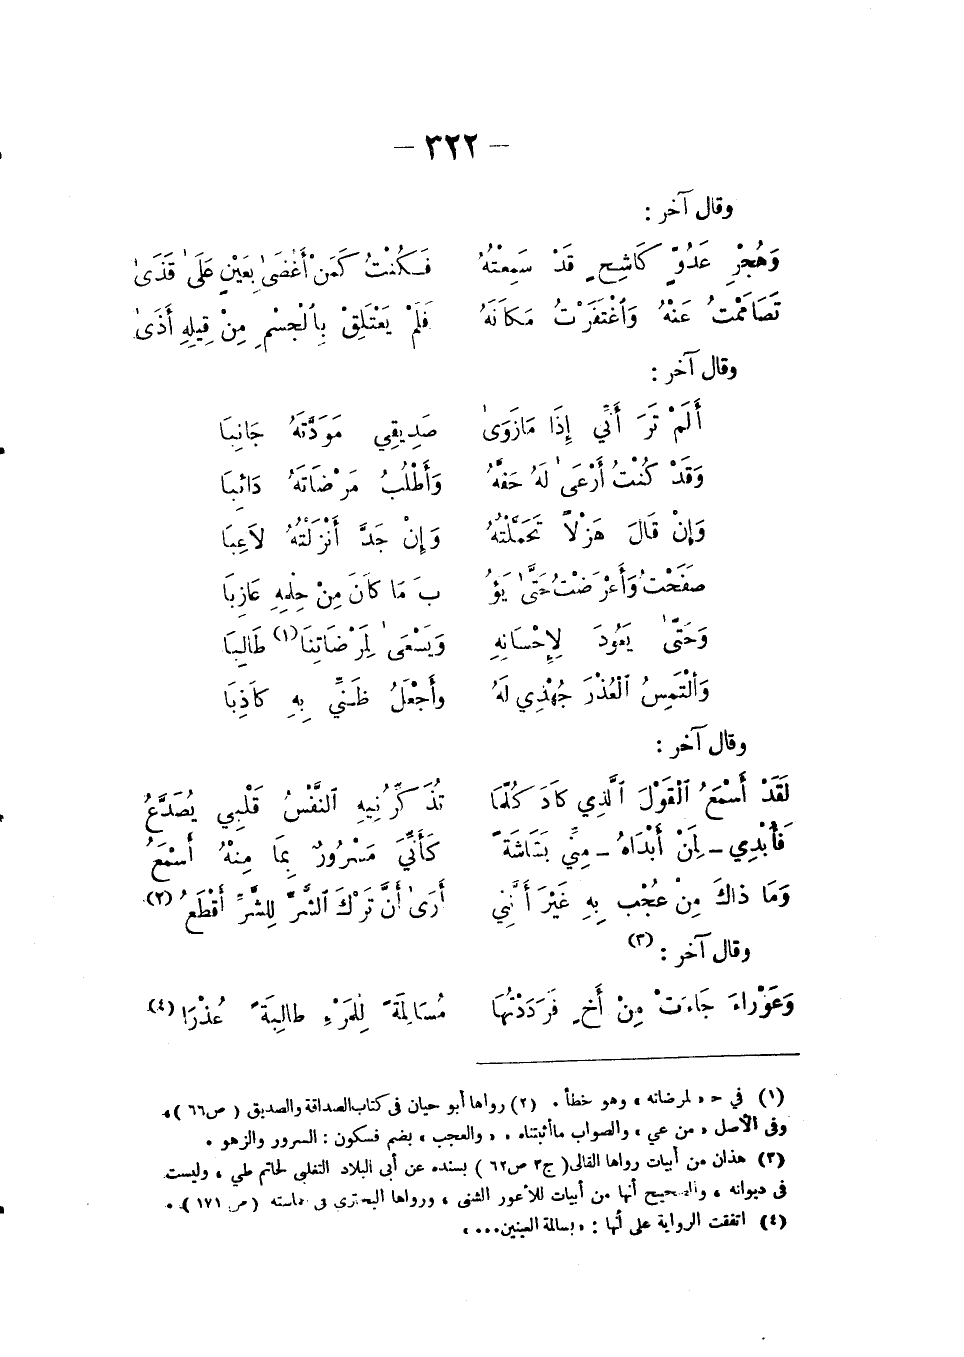 — ٣٢٢ —
وقال آخر :
وَهُجْرِ عَدُوٍّ كَاشِحٍ قَدْ سَمِعْتُهُ فَكُنْتُ كَمَنْ أَغْضَىٰ بِعَيْنٍ عَلَىٰ قَذَىٰ
تَصَامَمْتُ عَنْهُ وَٱغْتَفَرْتُ مَكَانَهُ فَلَمْ يَعْتَلِقْ بِالْجِسْمِ مِنْ قِيلِهِ أَذَىٰ
وقال آخر :
أَلَمْ تَرَ أَنِّي إِذَا مَا زَوَىٰ صَدِيقِي مَوَدَّتَهُ جَانِبَا
وَقَدْ كُنْتُ أَرْعَىٰ لَهُ حَقَّهُ وَأَطْلُبُ مَرْضَاتَهُ دَائِبَا
وَإِنْ قَالَ هَزْلًا تَحَمَّلْتُهُ وَإِنْ جَدَّ أَنْزَلْتُهُ لَاعِبَا
صَفَحْتُ وَأَعْرَضْتُ حَتَّىٰ يَؤُ بَ مَا كَانَ مِنْ حِلْمِهِ عَازِبَا
وَحَتَّىٰ يَعُودَ لِإِحْسَانِهِ وَيَسْعَىٰ لِمَرْضَاتِنَا (١) طَالِبَا
وَأَلْتَمِسُ ٱلْعُذْرَ جُهْدِي لَهُ وأَجْعَلُ ظَنِّي بِهِ كَاذِبَا
وقال آخر :
لَقَدْ أَسْمَعُ ٱلْقَوْلَ ٱلَّذِي كَادَ كُلَّمَا تُذَكِّرُنِيهِ ٱلنَّفْسُ قَلْبِي يُصَدَّعُ
فَأُبْدِي – لِمَنْ أَبْدَاهُ – مِنِّي بَشَاشَةً كَأَنِّيَ مَسْرُورٌ بِمَا مِنْهُ أَسْمَعُ
وَمَا ذَاكَ مِنْ عُجْبٍ بِهِ غَيْرَ أَنَّنِي أَرَىٰ أَنَّ تَرْكَ ٱلشَّرِّ لِلشَّرِّ أَقْطَعُ (٢)
وقال آخر : (٣)
وَعَوْرَاءَ جَاءَتْ مِنْ أَخٍ فَرَدَدْتُهَا مُسَالِمَةً لِلْمَرْءِ طَالِبَةً عُذْرَا (٤)
(١) في حـ « لمرضاته » وهو خطأ . (٢) رواها أبو حيان فى كتاب الصداقة والصديق ( ص٦٦ ) ،
وفى الأصل « من عي » والصواب ما أثبتناه . « والعجب » بضم فسكون : السرور والزهو .
(٣) هذان من أبيات رواها القالى ( ج٣ ص٦٢ ) بسنده عن أبى البلاد التغلبى لحاتم طي ، وليست
فى ديوانه ، والصحيح أنها من أبيات للأعور الشنى ، ورواها البحترى فى حماسته ( ص ١٧١ ) .
(٤) اتفقت الرواية على أنها : « بسالمة العينين ... »